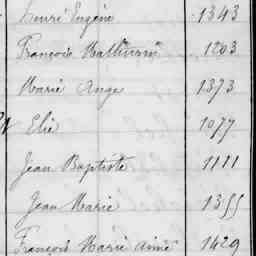 Henri Eugène 1343
François Mathurin 1203
Marie Ange 1373
Elie 1077
Jean Baptiste 1111
Jean Marie 1355
François Marie Aimé 1429